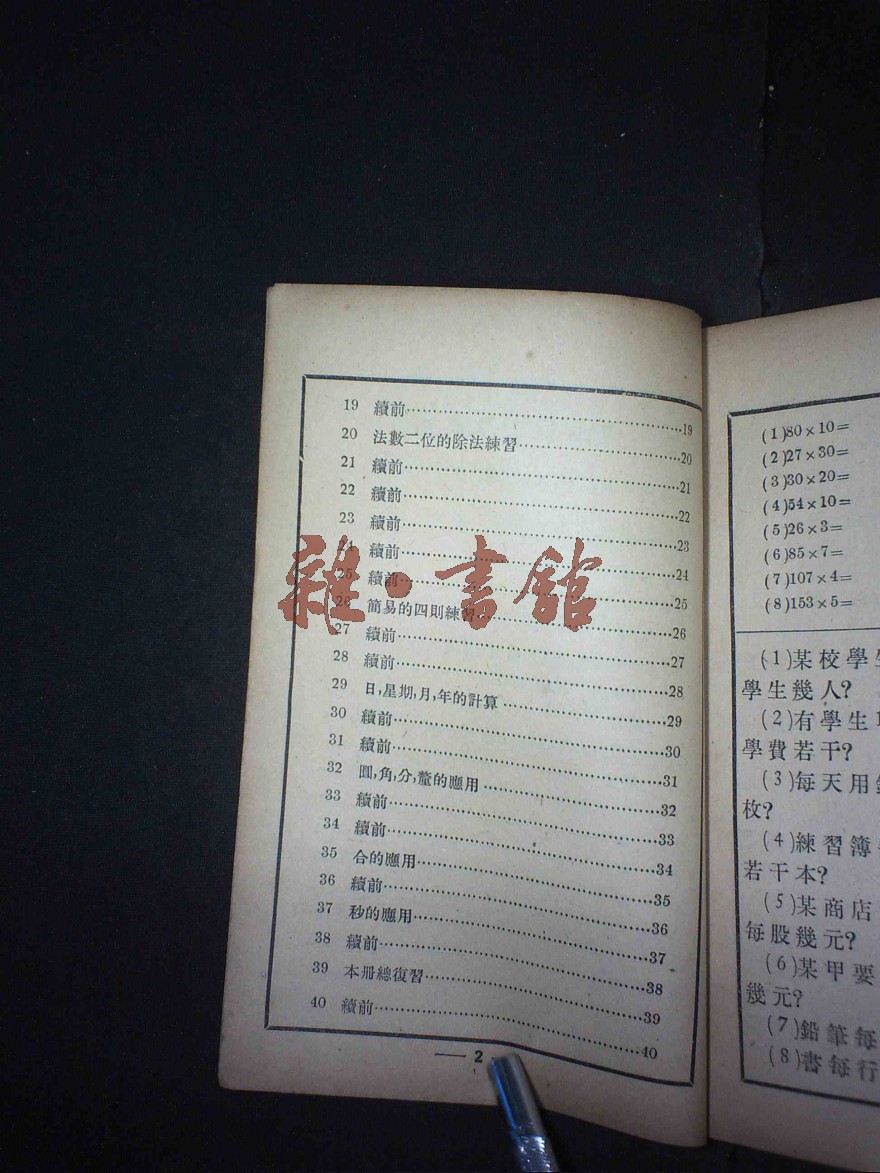 19 續前……19
20 法數二位的除法練習……20
21 續前……21
22 續前……22
23 續前……23
24 續前……24
25 續前……25
26 簡易的四則練習……26
27 續前……27
28 續前……28
29 日,星期,月,年的計算……29
30 續前……30
31 續前……31
32 圓,角,分,釐的應用……32
33 續前……33
34 續前……34
35 合的應用……35
36 續前……36
37 秒的應用……37
38 續前……38
39 本冊總復習……39
40 續前……40
— 2
雜·書館
(1)80×10=
(2)27×30=
(3)30×20=
(4)54×10=
(5)26×3=
(6)85×7=
(7)107×4=
(8)153×5=
(1)某校學生
學生幾人?
(2)有學生1
學費若干?
(3)每天用
枚?
(4)練習簿
若干本?
(5)某商店
每股幾元?
(6)某甲要
幾元?
(7)鉛筆每
(8)書每行